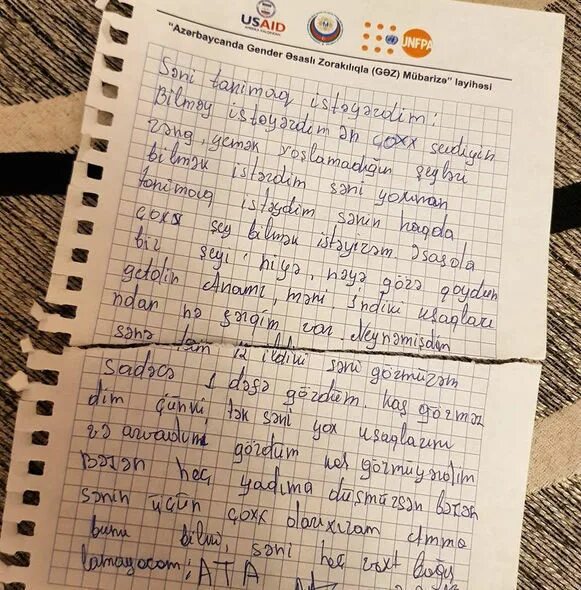 USAID
UNFPA
"Azərbaycanda Gender Əsaslı Zorakılıqla (GƏZ) Mübarizə" layihəsi
Səni tanimaq istəyərdim!
Bilməy istəyərdim ən çoxx sevdiyin
rəng, yemək xoşlamadığın şeyləri
bilmək istərdim səni yoxınan
tanimaq istəydim sənin haqda
çoxx şey bilmək istəyirəm. Əsasola
bir şeyi, niyə, nəyə görə qoydun
getdin Anami, məni. Indiki uşaqları
ndan nə fərqim var. Neynəmişdim
sənə tam 12 ildiki səni görmürəm
sadəcə 1 dəfə gördüm. kaş görməz
dim çünki tək səni yox uşaqlarını
və arvadını gördüm kaş görmuyəydim
Bəzən heç yadıma düşmürsən bəzən
sənin üçün çoxx darıxıram Amma
bunu bilki, səni heç vaxt bağış
lamayacam! ATA